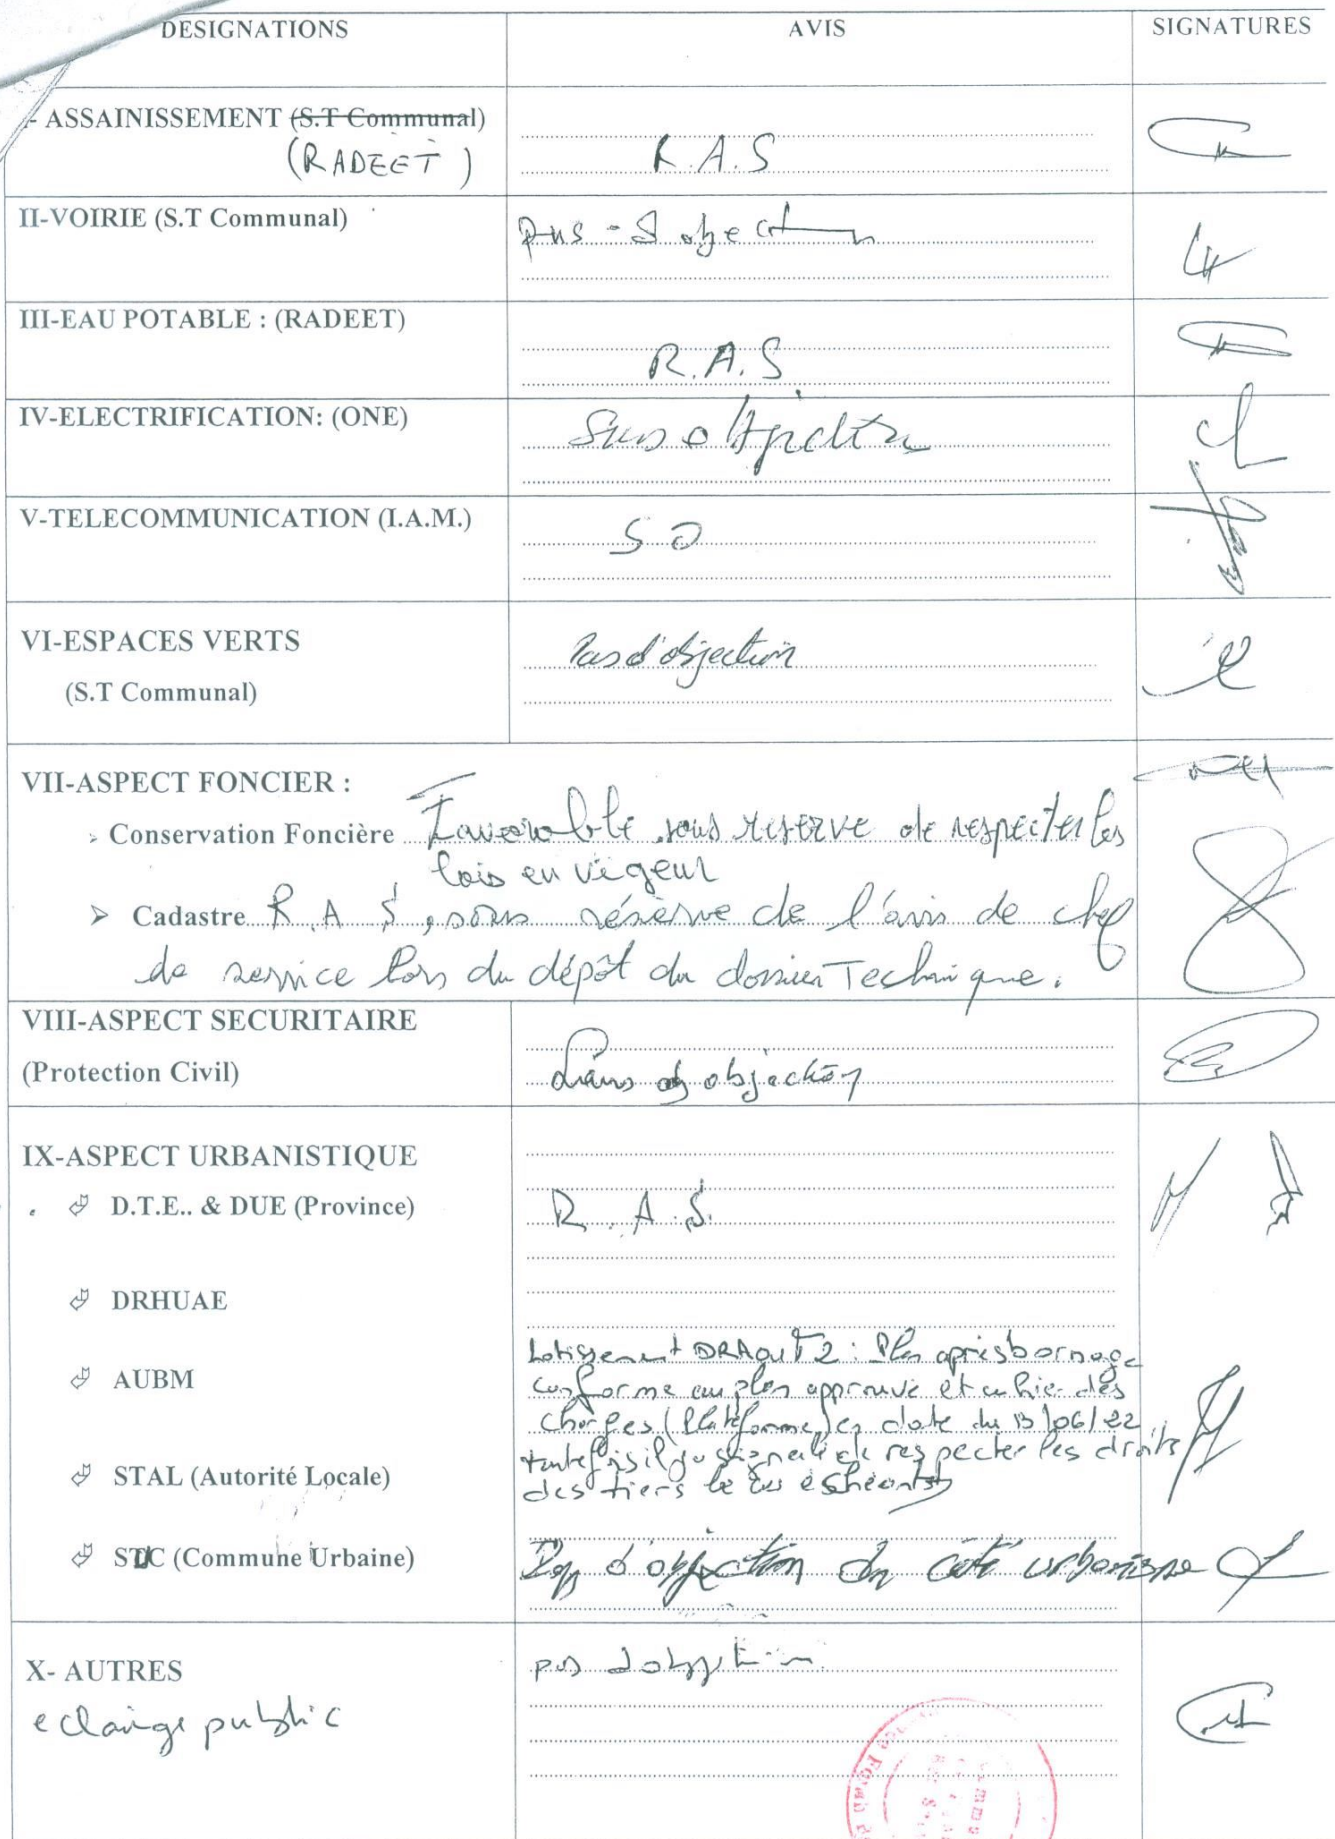 DESIGNATIONS AVIS SIGNATURES
- ASSAINISSEMENT (S.T Communal)
(RADEET) R.A.S
II-VOIRIE (S.T Communal) pas - d objection
III-EAU POTABLE : (RADEET)
R.A.S
IV-ELECTRIFICATION: (ONE) Sans objection
V-TELECOMMUNICATION (I.A.M.) S O
VI-ESPACES VERTS Pas d'objection
(S.T Communal)
VII-ASPECT FONCIER :
Conservation Foncière Favorable sous réserve de respecter les
lois en vigeur
➢ Cadastre R A S, sous réserve de l'avis de chef
de service lors du dépôt du dossier Technique.
VIII-ASPECT SECURITAIRE
(Protection Civil) Sans objection
IX-ASPECT URBANISTIQUE
D.T.E.. & DUE (Province) R.A.S.
DRHUAE
Lotissement DRAOUI 2 : Plan après bornage
AUBM conforme au plan approuvé et cahier des
charges (Plateforme) en date du 13/06/22
STAL (Autorité Locale) toutefois il respecter les droits
des tiers le cas échéants
STC (Commune Urbaine) Pas d'objection du côté urbanisme
X- AUTRES pas d objection
eclairage public